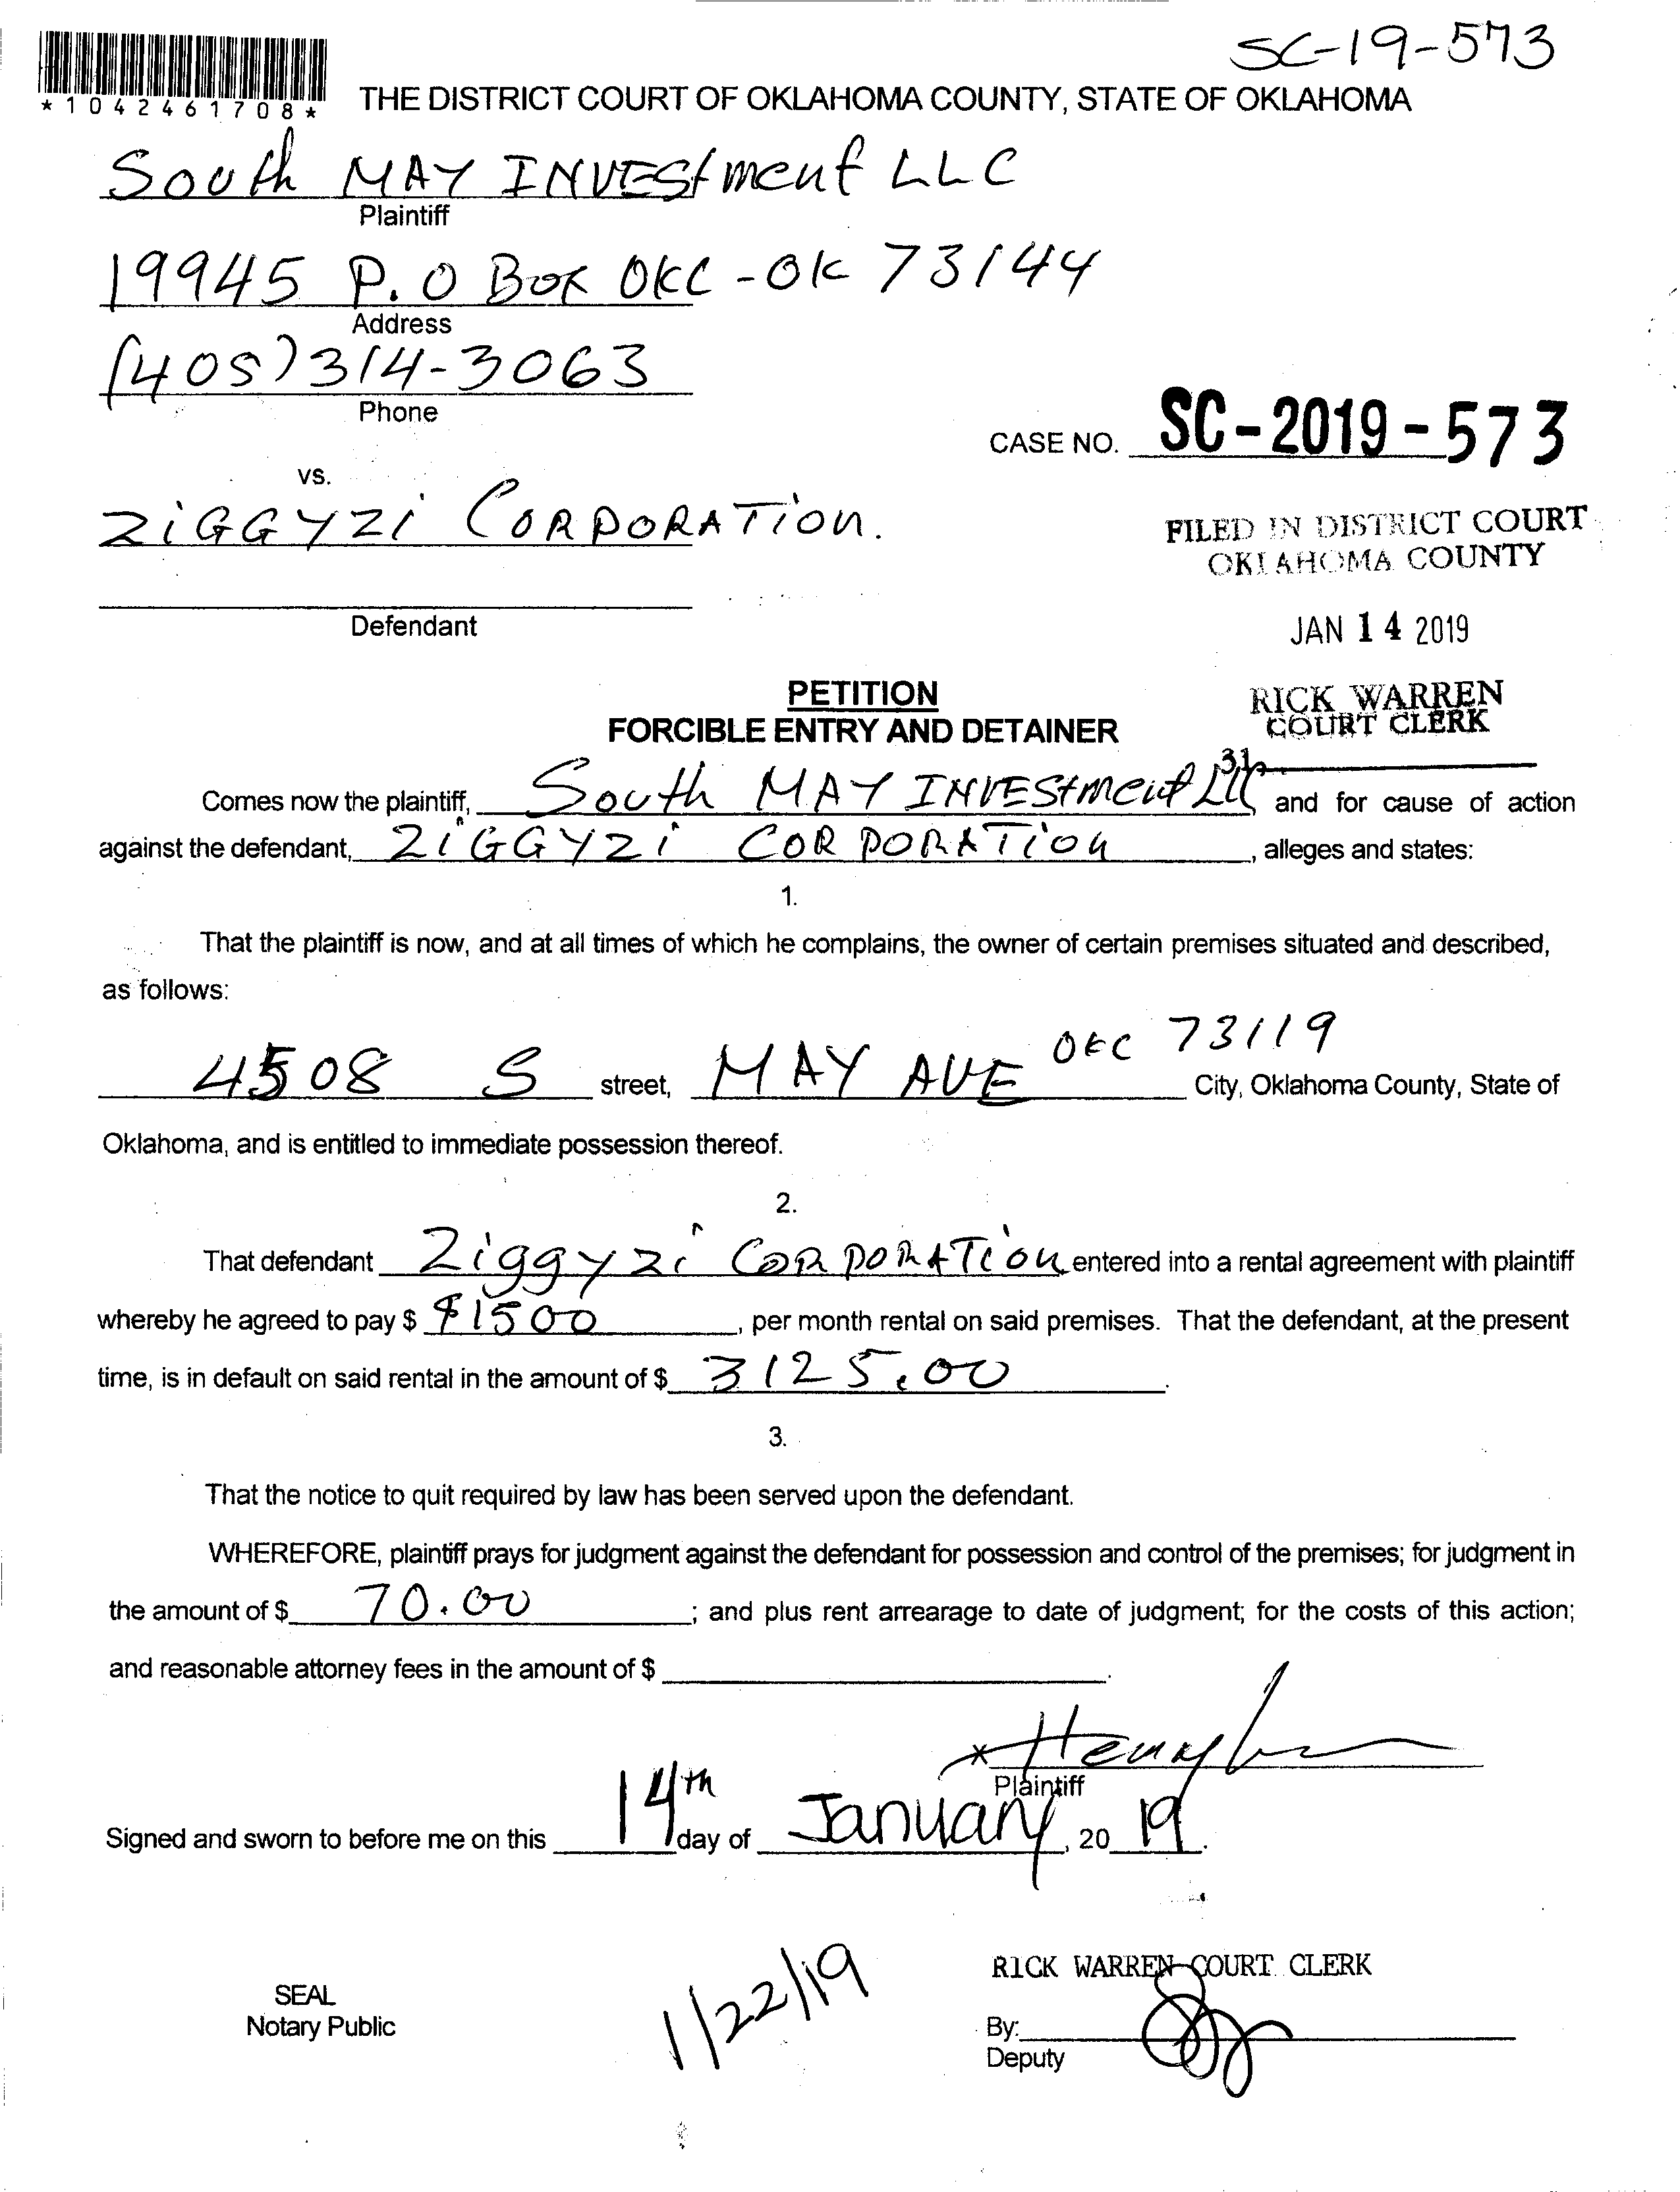 SC-19-573
*1042461708*
THE DISTRICT COURT OF OKLAHOMA COUNTY, STATE OF OKLAHOMA
South MAY INVEStment LLC
Plaintiff
19945 P.O Box OKC-OK 73144
Address
(405)314-3063
Phone
CASE NO. SC-2019-573
vs.
ZiGGYZi CORPORATion.
FILED IN DISTRICT COURT
OKLAHOMA COUNTY
Defendant
JAN 14 2019
PETITION
RICK WARREN
FORCIBLE ENTRY AND DETAINER
COURT CLERK
31
Comes now the plaintiff, South MAY INVEStment LLC and for cause of action
against the defendant, ZiGGYZi CORPORATion, alleges and states:
1.
That the plaintiff is now, and at all times of which he complains, the owner of certain premises situated and described,
as follows:
4508 S street, MAY AVE OKC 73119 City, Oklahoma County, State of
Oklahoma, and is entitled to immediate possession thereof.
2.
That defendant Ziggyzi CORPORATion entered into a rental agreement with plaintiff
whereby he agreed to pay $ $1500, per month rental on said premises. That the defendant, at the present
time, is in default on said rental in the amount of $ 3125.00.
3.
That the notice to quit required by law has been served upon the defendant.
WHEREFORE, plaintiff prays for judgment against the defendant for possession and control of the premises; for judgment in
the amount of $ 70.00; and plus rent arrearage to date of judgment; for the costs of this action;
and reasonable attorney fees in the amount of $ .
Plaintiff
Signed and sworn to before me on this 14th day of January, 20 19.
RICK WARREN COURT CLERK
SEAL
Notary Public
1/22/19
By:
Deputy